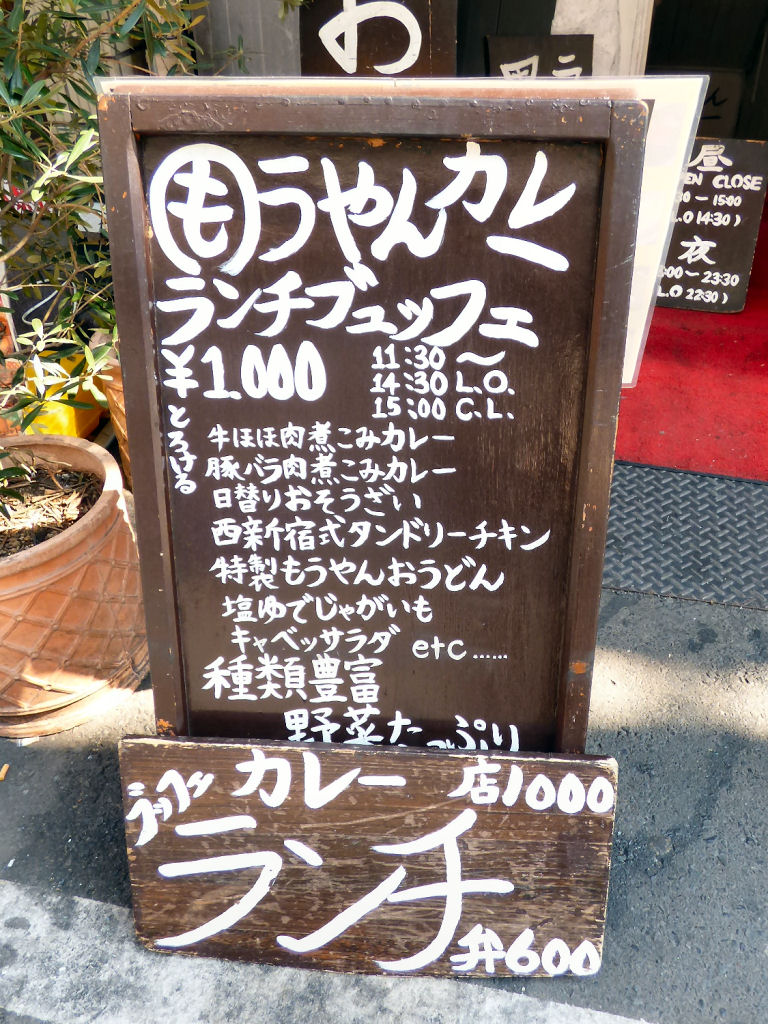 お
昼
OPEN CLOSE
15:00
L.O 14:30)
夜
23:30
L.O 22:30)
もうやんカレー
ランチブュッフェ
¥1.000
11:30〜
14:30 L.O.
15:00 C.L.
とろける
牛ほほ肉煮こみカレー
豚バラ肉煮こみカレー
日替りおそうざい
西新宿式タンドリーチキン
特製もうやんおうどん
塩ゆでじゃがいも
キャベッサラダ etc……
種類豊富
野菜たっぷり
カレー 店1000
ランチ
弁600